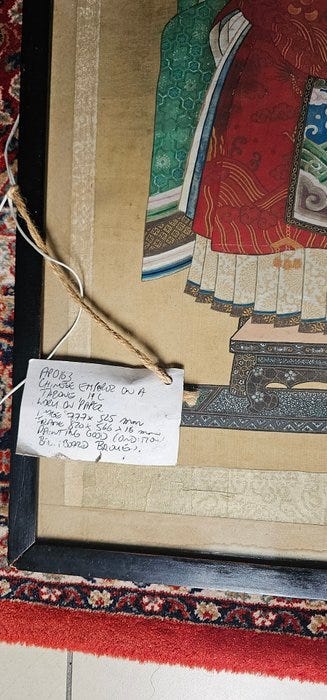 AP0163
CHINESE EMPEROR ON A
THRONE, 19C
WORK ON PAPER
IMAGE 777 x 525 mm
FRAME 870 x 566 x 16 mm
PAINTING GOOD CONDITION
BOARD